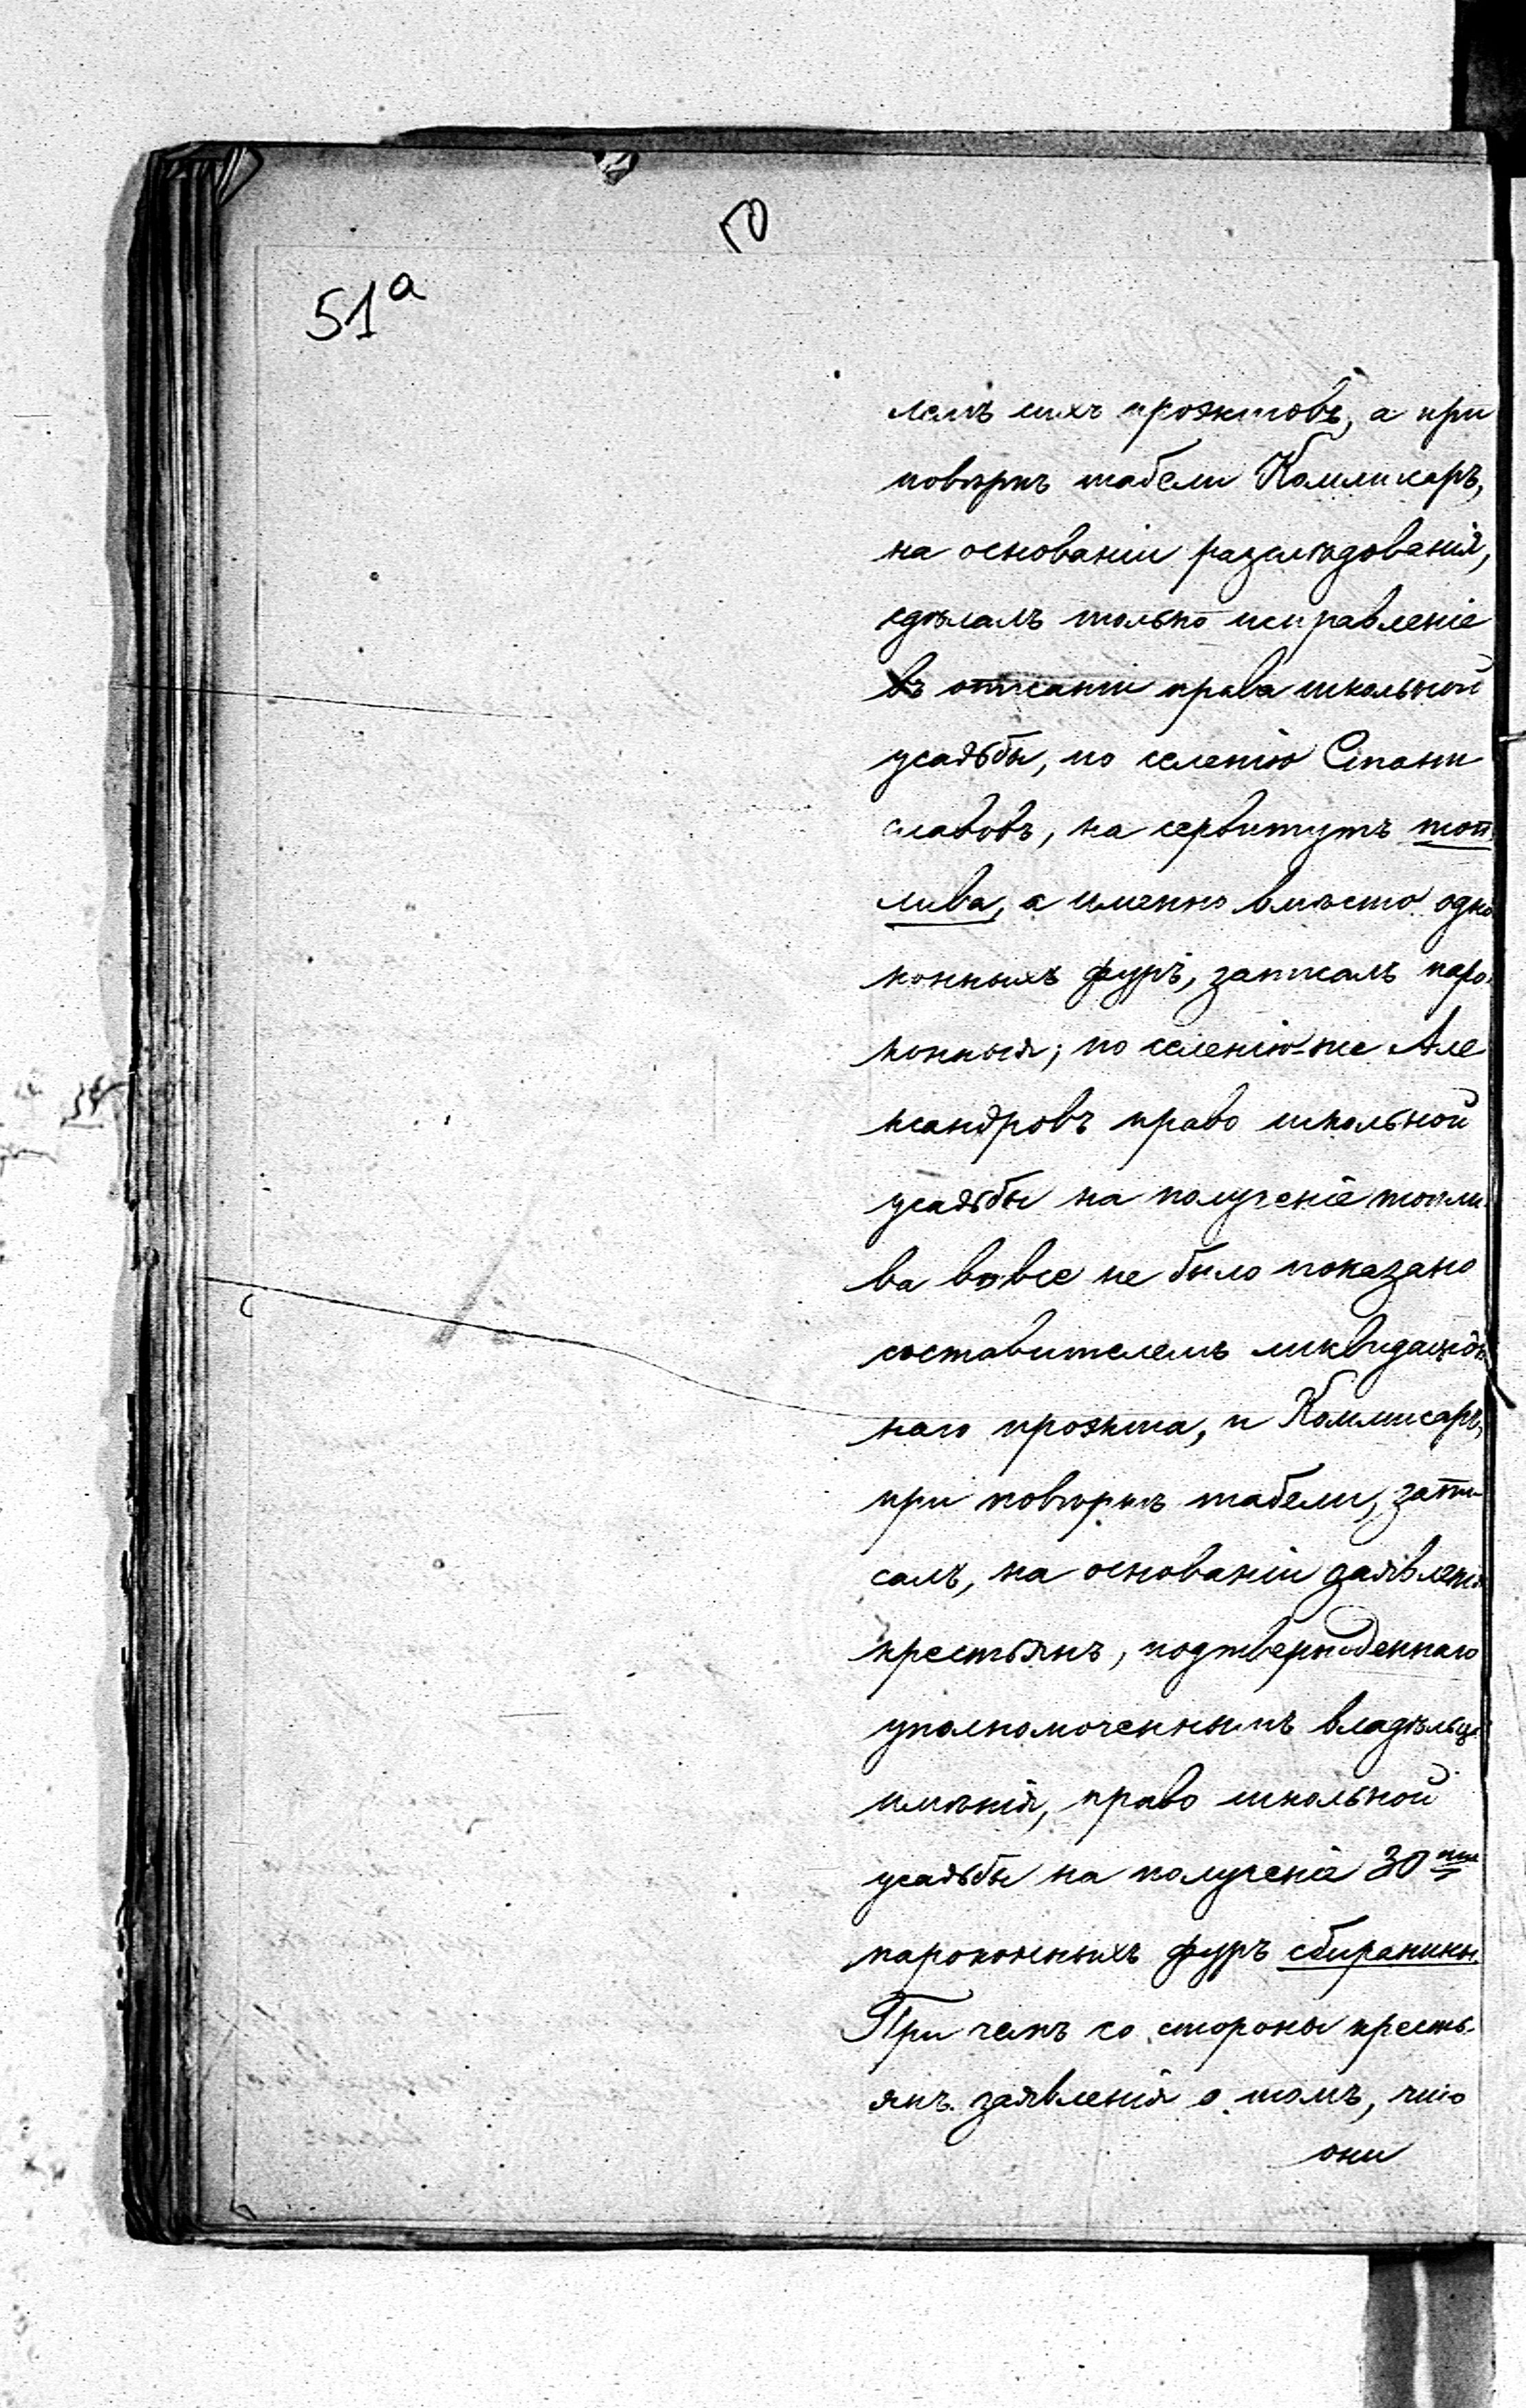 50
51а
лемъ ихъ проэктовъ, а при
повѣркѣ табели Коммисаръ,
на основаніи разслѣдованія,
сдѣлалъ только исправленіе
въ описаніи права школьной
усадьбы, по селенію Стани
славовъ, на сервитутъ топ
лива, а именно вмѣсто одно
конныхъ фуръ, записалъ паро
конныя; по селенію-же Але
ксандровъ право школьной
усадьбы на полученіе топли
ва вовсе не было показано
составителемъ ликвидаціон
наго проэкта, и Коммисаръ,
при повѣркѣ табели, запи
салъ, на основаніи заявленія
крестьянъ, подтвержденнаго
уполномоченнымъ владѣльца
имѣнія, право школьной
усадьбы на полученіе 30ти
пароконныхъ фуръ сбиранины.
При чемъ со стороны кресть
янъ заявленія о томъ, что
они